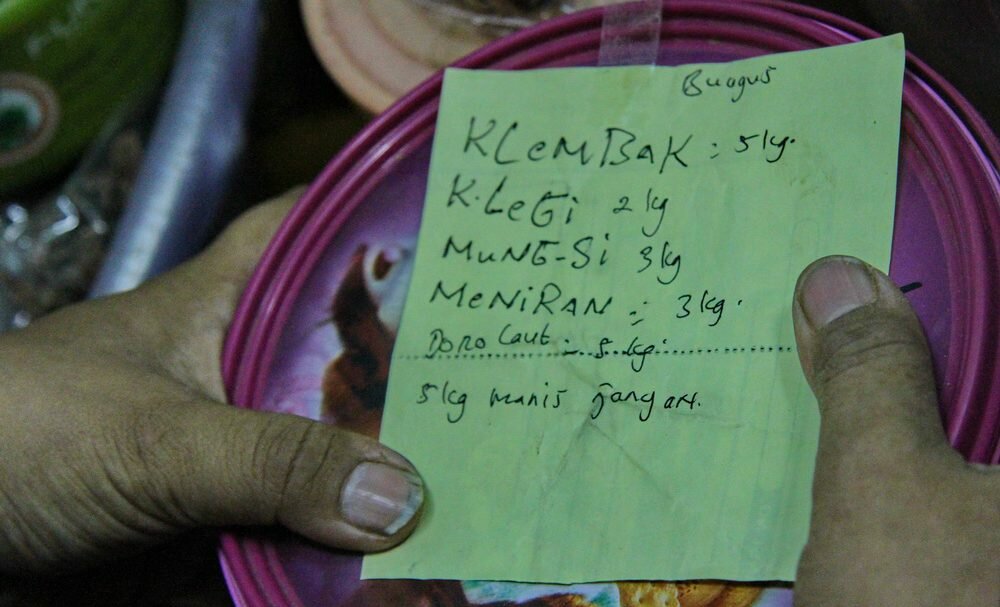 Buagus
KLeMBaK : 5 kg.
K.LeGi 2 kg
MuNG-Si 3 kg
MeNiRAN : 3 kg.
Doro Laut : 5 kg.
5 kg manis jangan.